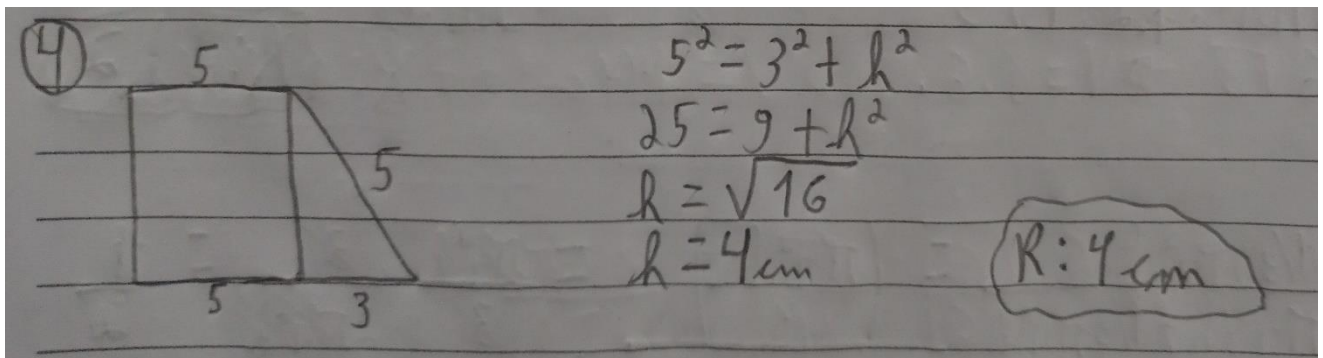 4
5
5
5 3
5² = 3² + h²
25 = 9 + h²
h = √16
h = 4 cm
R: 4 cm